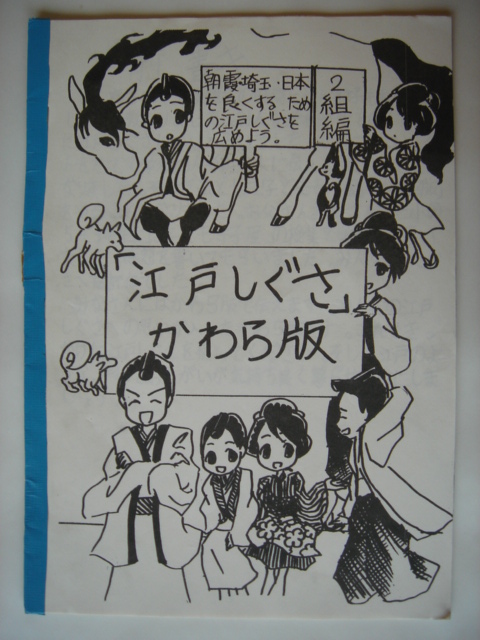 朝霞・埼玉・日本
を良くするための江戸しぐさを
広めよう。
2組編
「江戸しぐさ」
かわら版